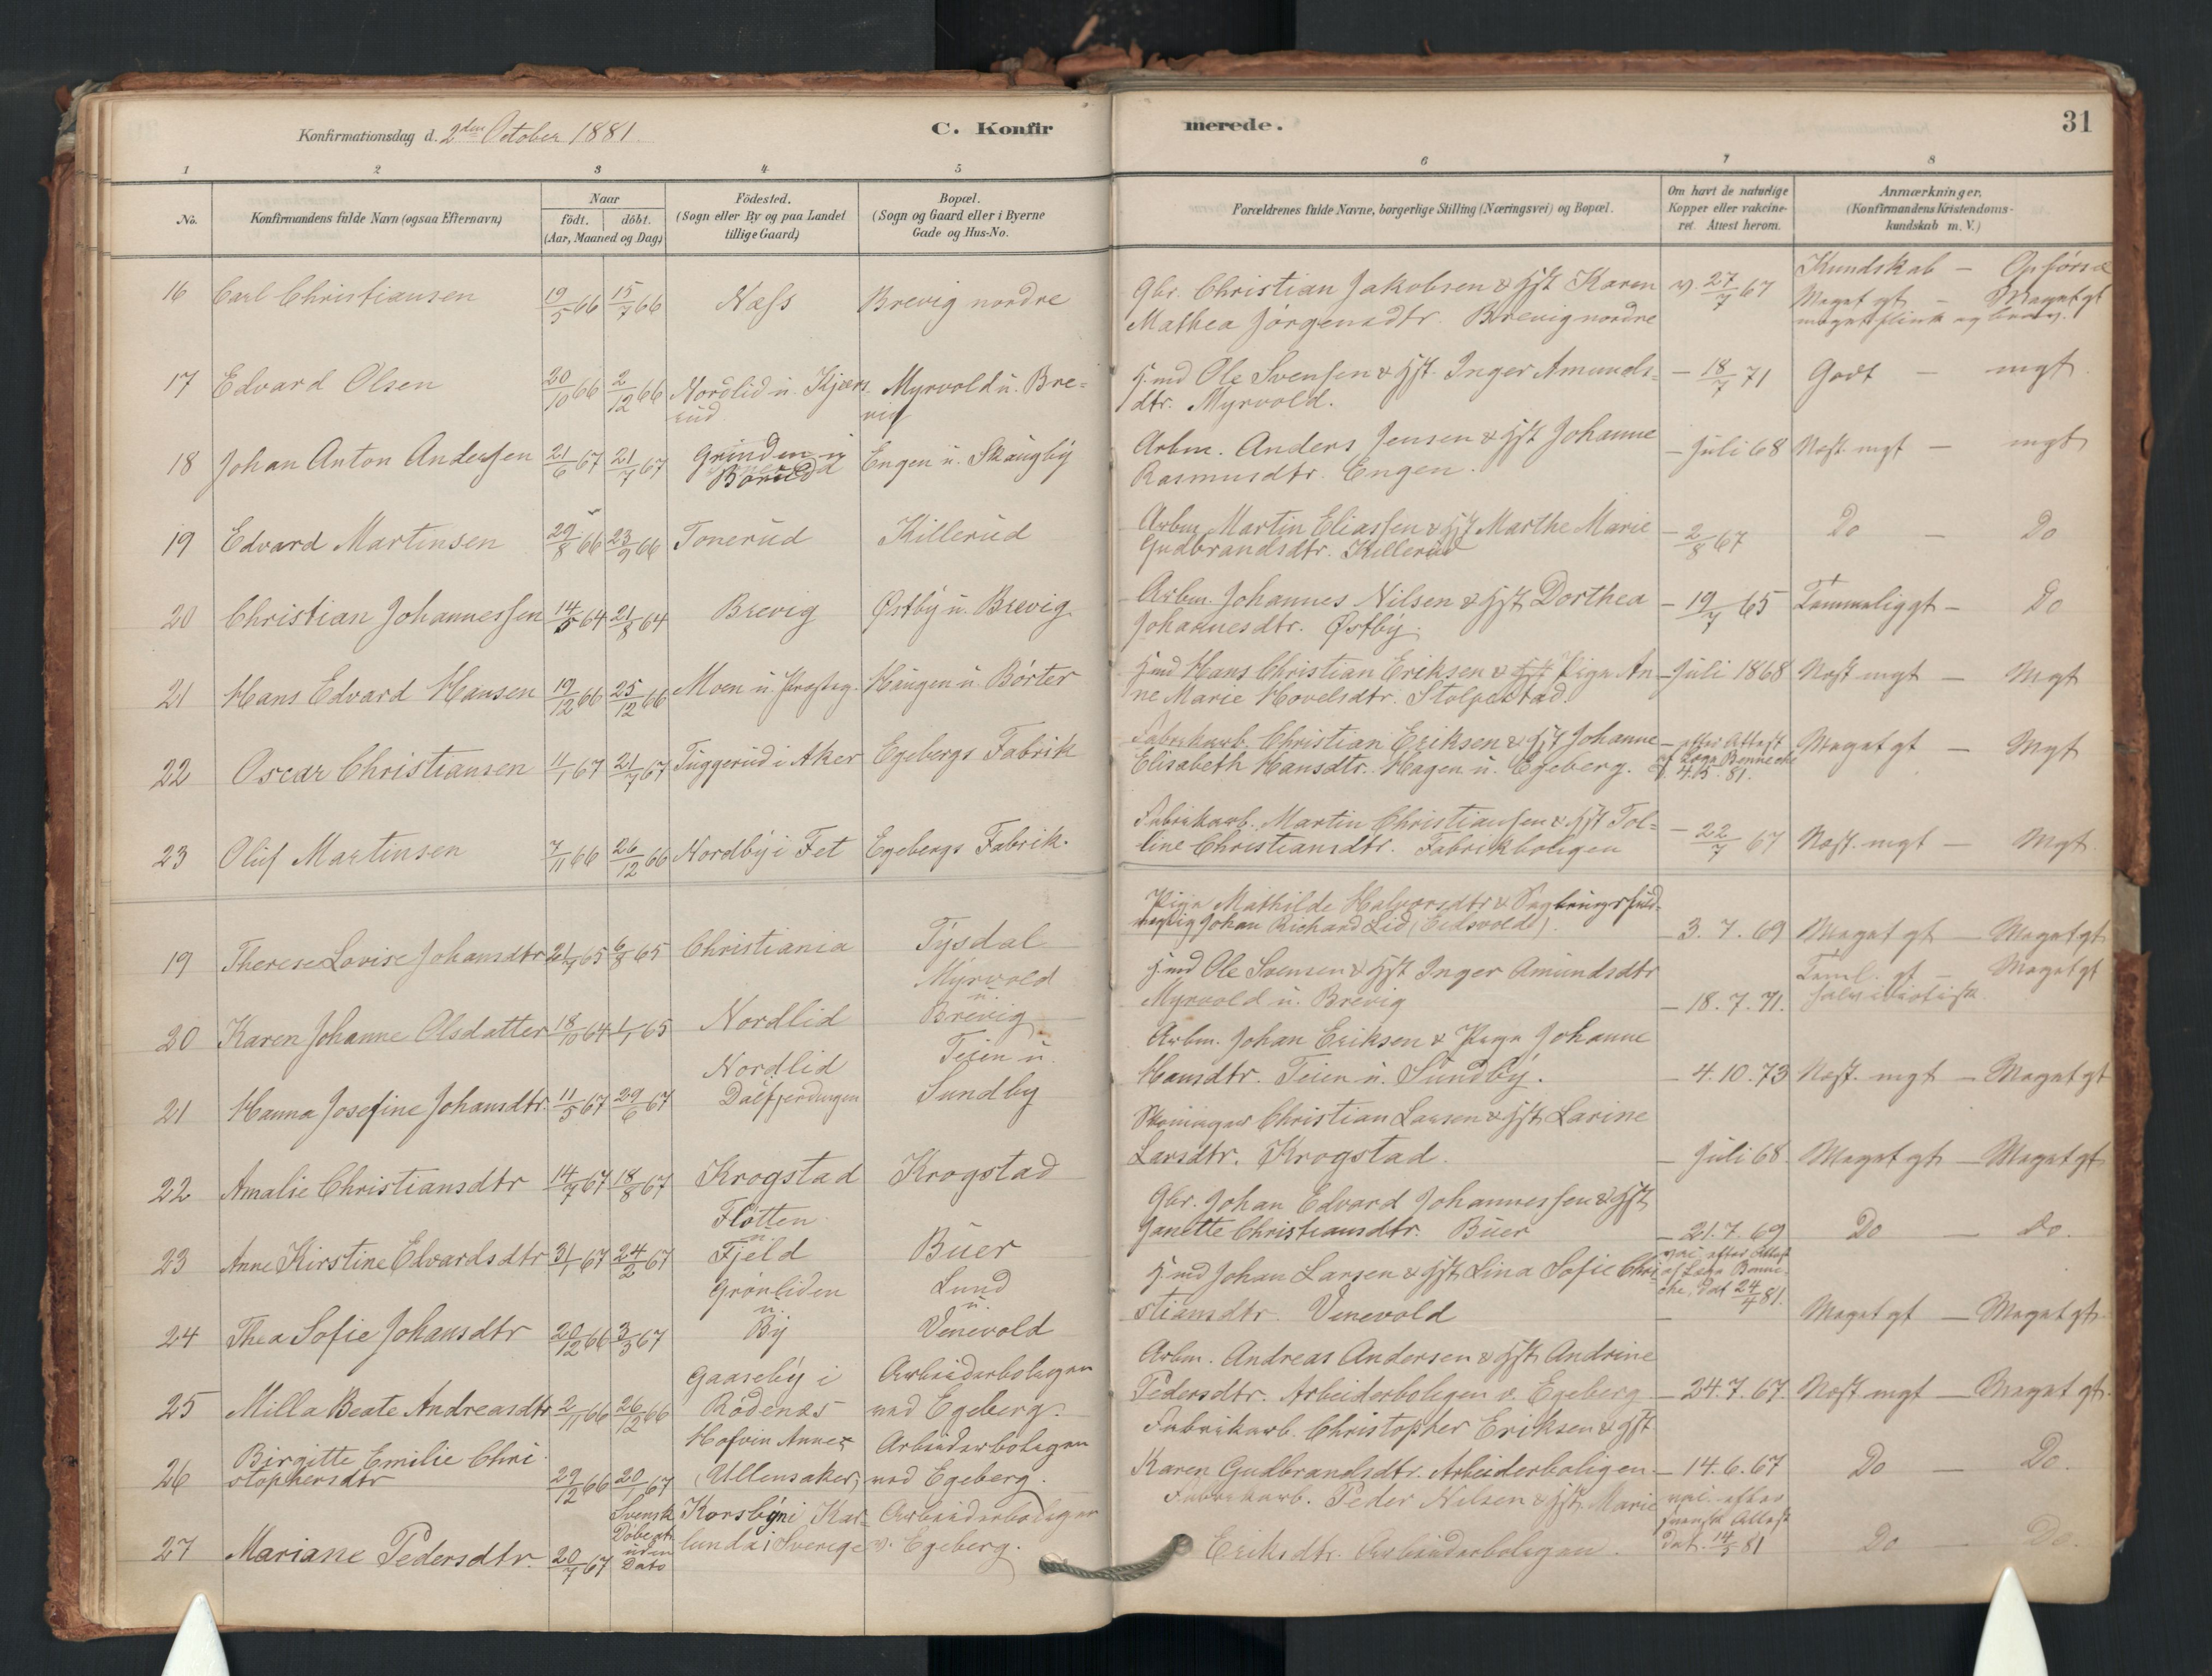 Konfirmationsdag d. 2den October 1881.
C. Konfirmerede.
31
1 2 3 4 5 6 7 8
No.
Konfirmandens fulde Navn (ogsaa Efternavn)
Naar
födt. döbt.
(Aar, Maaned og Dag)
Födested.
(Sogn eller By og paa Landet
tillige Gaard)
Bopæl.
(Sogn og Gaard eller i Byerne
Gade og Hus-No.
Forældrenes fulde Navne, borgerlige Stilling (Næringsvei) og Bopæl.
Om havt de naturlige
Kopper eller vakcine-
ret. Attest herom.
Anmærkninger.
(Konfirmandens Kristendoms-
kundskab m. V.)
Kundskab –
16 Carl Christiansen 19/5 66 15/7 66 Næss Brevig nordre Gbr. Christian Jakobsen & Hst Karen v. 27/7 67 Meget gt – Meget gt
Mathea Jørgensdtr. Brevig nordre meget flink og
17 Edvard Olsen 20/10 66 2/12 66 Nordlid u. Kjærs Myrvold u. Bre= Hmd Ole Svensen & Hst. Inger Amunds= – 18/7 71 Godt – mgt.
rud. vig dtr. Myrvold.
18 Johan Anton Andersen 21/6 67 21/7 67 Grinden u Engen u. Skaugby Arbm. Anders Jensen & Hst Johanne – Juli 68 Næst. mgt – mgt
Rasmusdtr. Engen.
19 Edvard Martinsen 29/8 66 23/9 66 Tonerud Killerud Arbm. Martin Eliassen & Hst Marthe Marie – 2/8 67 Do – Do
Gudbrandsdtr. Killerud
20 Christian Johannessen 14/5 64 21/8 64 Brevig Østby u. Brevig Arbm. Johannes Nilsen & Hst Dorthea – 19/7 65 Temmelig gt – Do
Johannesdtr. Østby.
21 Hans Edvard Hansen 19/12 66 25/12 66 Moen u. Præsteg. Haugen u. Børter Hmd Hans Christian Eriksen & Hst Pige An – Juli 1868 Næst mgt – Mgt
ne Marie Hovelsdtr. Stolpestad.
22 Oscar Christiansen 11/1 67 21/7 67 Tuggerud i Aker Egebergs Fabrik Fabrikarb. Christian Eriksen & Hst Johanne – efter Attest Meget gt – Mgt
Elisabeth Hansdtr. Hagen u. Egeberg. af Læge Bennecke
4.5.81.
23 Oluf Martinsen 7/11 66 26/12 66 Nordby i Fet Egebergs Fabrik. Fabrikarb. Martin Christiansen & Hst Tol= – 22/7 67 Næst. mgt – Mgt.
line Christiansdtr. Fabrikboligen
Pige Mathilde Halvorsdtr &
19 Therese Lovise Johansdtr 21/7 65 6/8 65 Christiania Tysdal Johan Richard Lid (Eidsvold). – 3.7.69 Meget gt – Meget gt
20 Karen Johanne Olsdatter 18/10 64 1/1 65 Nordlid Myrvold
u.
Brevig Hmd Ole Svensen & Hst Inger Amundsdtr
Myrvold u. Brevig – 18.7.71. Teml. gt – Meget gt
21 Hanna Josefine Johansdtr. 11/5 67 29/6 67 Nordlid
Dalfjerdingen Teien u.
Sundby Arbm. Johan Eriksen & Pige Johanne
Hansdtr. Teien u. Sundby. – 4.10.73 Næst. mgt – Meget gt
22 Amalie Christiansdtr 14/7 67 18/8 67 Krogstad Krogstad Christian Larsen & Hst Larine
Larsdtr. Krogstad. – Juli 68. Meget gt – Meget gt
23 Anne Kirstine Edvardsdtr 31/1 67 24/2 67 Flotten
u.
Fjeld Buer Gbr. Johan Edvard Johannessen & Hst
Janette Christiansdtr. Buer – 21.7.69 Do – Do.
24 Thea Sofie Johansdtr 20/12 66 3/3 67 Grønliden
u.
By Lund
u.
Venevold Hmd Johan Larsen & Hst Lina Sofie Chri=
stiansdtr. Venevold vac. efter Attest
af Læge Benne-
cke, dat 24/4 81. Meget gt – Meget gt
25 Milla Beate Andreasdtr 2/11 66 26/12 66 Gaaseby i
Rødenæs Arbeiderboligen
ved Egeberg. Arbm. Andreas Andersen & Hst Andrine
Pedersdtr. Arbeiderboligen v. Egeberg – 24.7.67. Næst mgt – Meget gt.
26 Birgitte Emilie Chri
stophersdtr 29/12 66 20/1 67 Hofvin Annex
(Ullensaker) Arbeiderboligen
ved Egeberg. Fabrikarb. Christopher Eriksen & Hst
Karen Gudbrandsdtr. Arbeiderboligen – 14.6.67 Do – Do.
27 Mariane Pedersdtr. 20/7 67 Svensk
Døbeatt.
uden
Dato Korsbyn i Kar=
landa i Sverige Arbeiderboligen
v. Egeberg. Fabrikarb. Peder Nilsen & Hst Marie
Eriksdtr. Arbeiderboligen. vac. efter
svensk Attest
dat. 14/5 81 Do – Do.